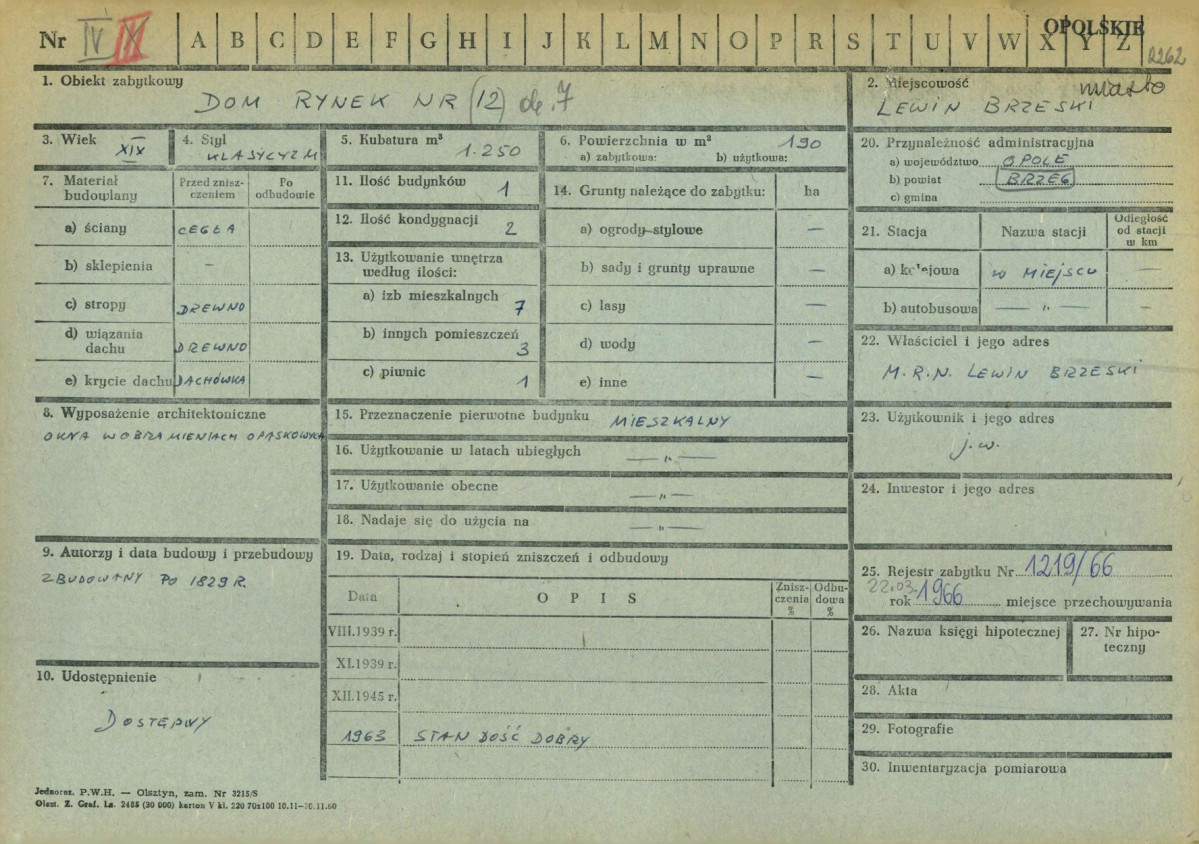 Nr IV A B C D E F G H I J K L M N O P R S T U V W X Y Z
OPOLSKIE
2262
1. Obiekt zabytkowy
DOM RYNEK NR (12) ob. 7
2. Miejscowość
miasto
LEWIN BRZESKI
3. Wiek
XIX
4. Styl
KLASYCYZM
5. Kubatura m³
1.250
6. Powierzchnia w m²
190
a) zabytkowa: b) użytkowa:
7. Materiał budowlany
Przed zniszczeniem
Po odbudowie
a) ściany CEGŁA
b) sklepienia –
c) stropy DREWNO
d) wiązania dachu DREWNO
e) krycie dachu DACHÓWKA
8. Wyposażenie architektoniczne
OKNA W OBRAMIENIACH OPASKOWYCH
9. Autorzy i data budowy i przebudowy
ZBUDOWANY PO 1829 R.
10. Udostępnienie
DOSTĘPNY
11. Ilość budynków 1
12. Ilość kondygnacji 2
13. Użytkowanie wnętrza według ilości:
a) izb mieszkalnych 7
b) innych pomieszczeń 3
c) piwnic 1
14. Grunty należące do zabytku: ha
a) ogrody stylowe –
b) sady i grunty uprawne –
c) lasy –
d) wody –
e) inne –
15. Przeznaczenie pierwotne budynku MIESZKALNY
16. Użytkowanie w latach ubiegłych — „ —
17. Użytkowanie obecne — „ —
18. Nadaje się do użycia na — „ —
19. Data, rodzaj i stopień zniszczeń i odbudowy
Data
O P I S
Zniszczenia %
Odbudowa %
VIII.1939 r.
XI.1939 r.
XII.1945 r.
1963 STAN DOŚĆ DOBRY
20. Przynależność administracyjna
a) województwo OPOLE
b) powiat BRZEG
c) gmina
21. Stacja
Nazwa stacji
Odległość od stacji w km
a) kolejowa W MIEJSCU —
b) autobusowa — „ — —
22. Właściciel i jego adres
M.R.N. LEWIN BRZESKI
23. Użytkownik i jego adres
j.w.
24. Inwestor i jego adres
25. Rejestr zabytku Nr 1219/66
22.03.
rok 1966 miejsce przechowywania
26. Nazwa księgi hipotecznej
27. Nr hipoteczny
28. Akta
29. Fotografie
30. Inwentaryzacja pomiarowa
Jednoraz. P.W.H. — Olsztyn, zam. Nr 3215/S
Olszt. Z. Graf. Ls. 2485 (30 000) karton V kl. 220 70x100 10.11—30.11.60